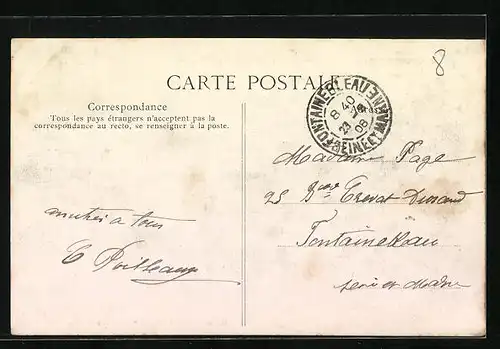 8
CARTE POSTALE
Correspondance
Tous les pays étrangers n'acceptent pas la
correspondance au recto, se renseigner à la poste.
FONTAINEBLEAU
SEINE ET MARNE
8 40
23
08
Madame Page
25 Bd
Fontainebleau
Seine et Marne
amitiés à tous